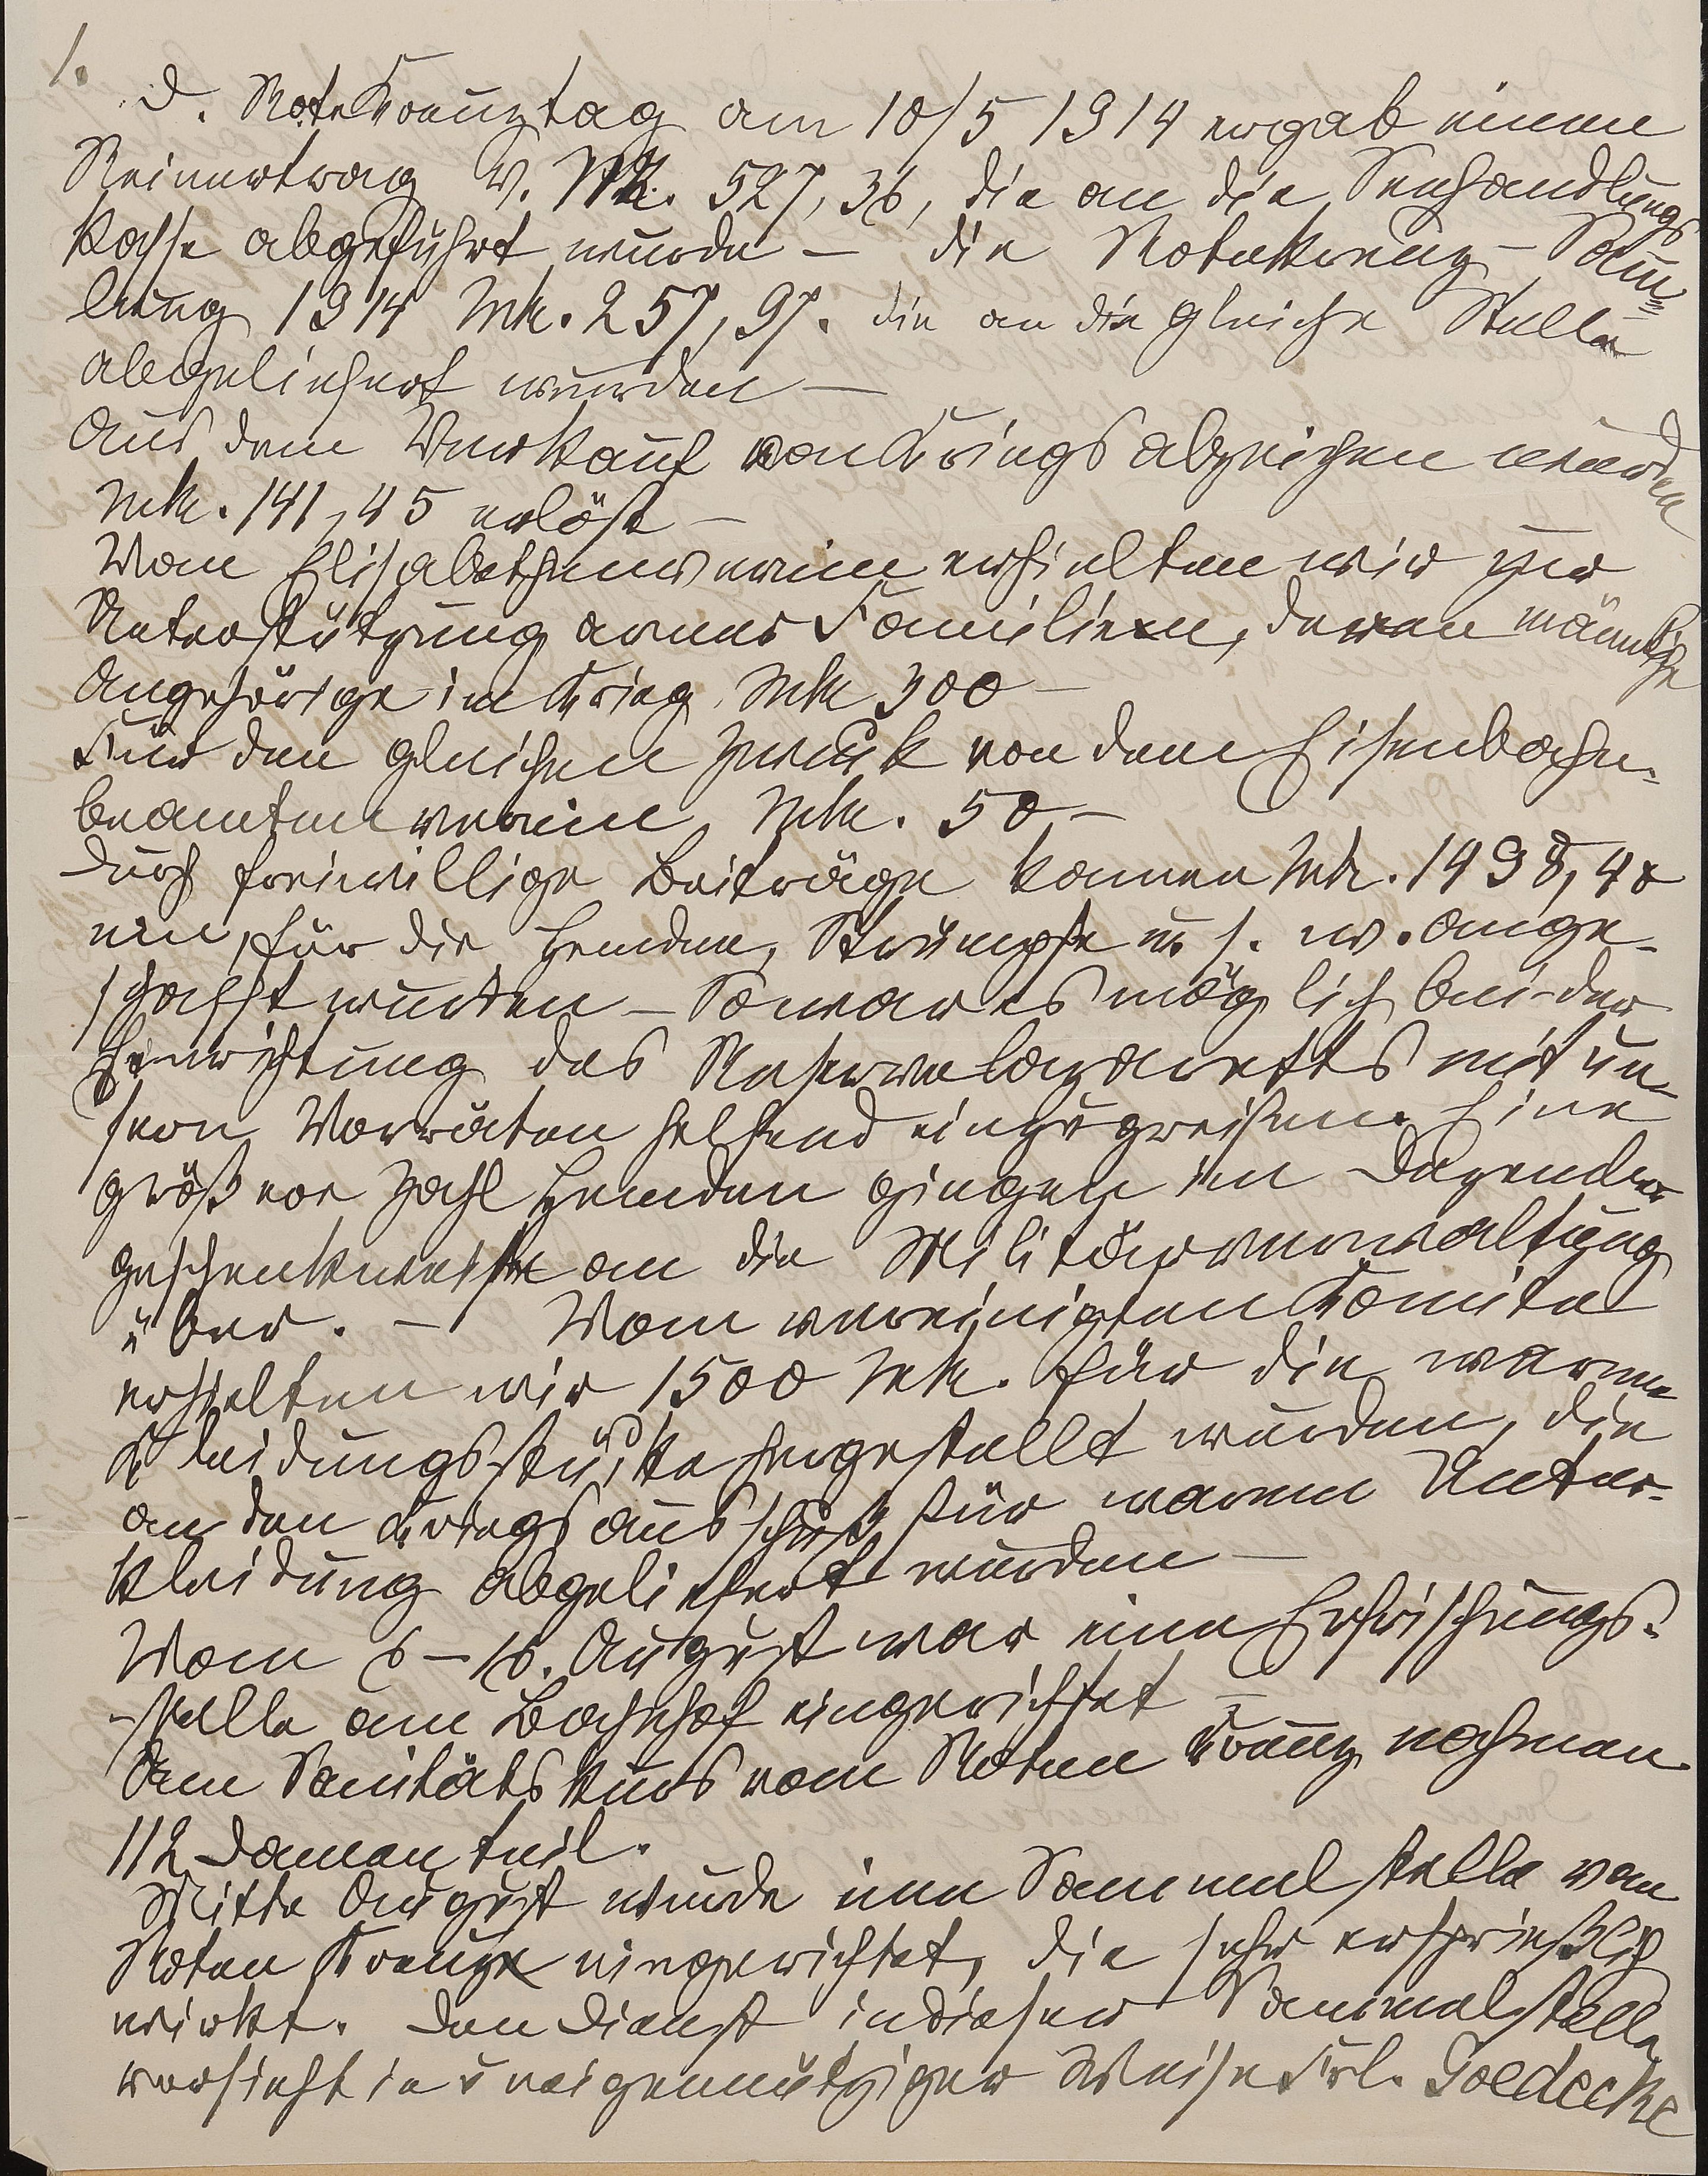 1.
D. Rote Kreuztag am 10/5 1914 ergab einen
Reinertrag v. Mk. 527,36, die an die Seehandlungs
kasse abgeführt wurde – die Rotekreuz-Sam=
lung 1914 Mk. 257,97. die an die gleiche Stelle
abgeliefert wurden –
Aus dem Verkauf von Kriegsabzeichen wurden
Mk. 141,45 erlöst –
Vom Elisabethenverein erhielten wir zur
Unterstützung armer Familien, deren männliche
Angehörige im Krieg Mk 300 –
Für den gleichen Zweck von dem Eisenbahn-
beamtenverein Mk. 50 –
Durch freiwillige Beiträge kamen Mk. 1498,40
ein, für die Hemden, Strümpfe u. s. w. ange-
schafft wurden – So war es möglich bei der
Einrichtung des Reservelazaretts mit un-
sern Vorräten helfend einzugreifen. Eine
größere Zahl Hemden gingen im Dezember
geschenkweise an die Militärverwaltung
über. – Vom vereinigten Komite
erhielten wir 1500 Mk. für die warme
Kleidungsstücke hergestellt wurden, die
an den Kriegsausschuß für warme Unter-
kleidung abgeliefert wurden –
Vom 6–16. August war eine Erfrischungs-
-stelle am Bahnhof eingerichtet –
Am Sanitätskurs vom Roten Kreuz nahmen
112 Damen teil.
Mitte August wurde eine Sammelstelle vom
Roten Kreuz eingerichtet, die sehr ersprießlich
wirkt. Den Dienst in dieser Sammelstelle
versieht in uneigennütziger Weise Frl. Goedecke